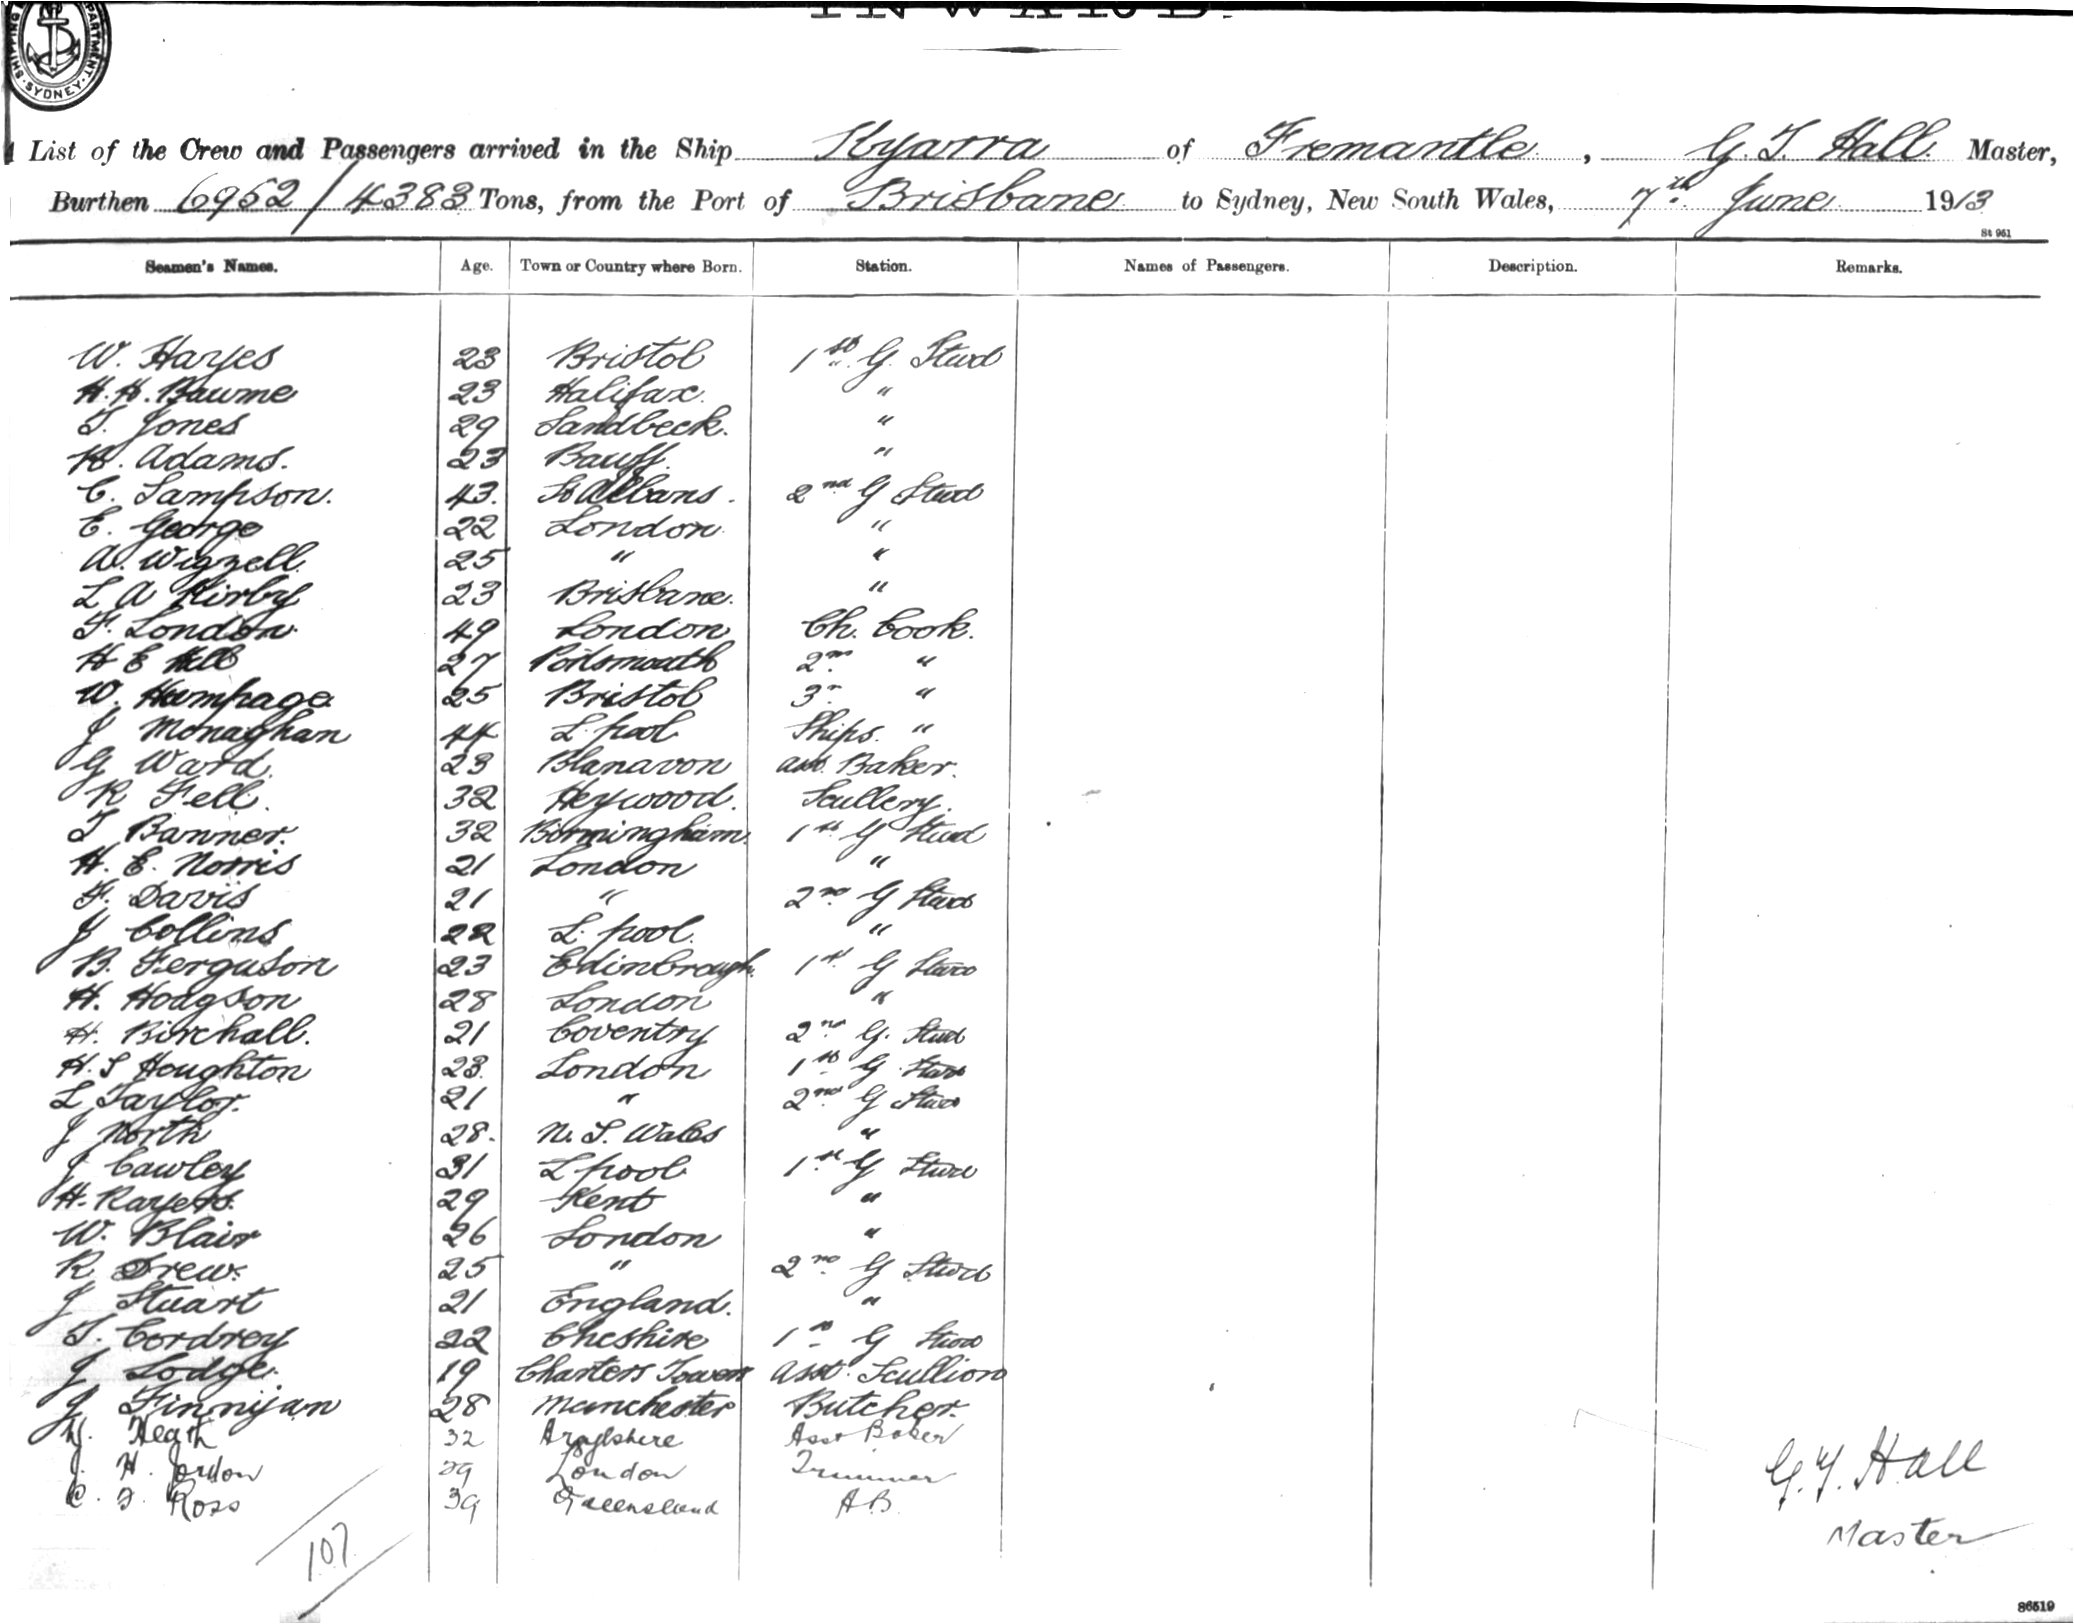 SHIPPING DEPARTMENT. SYDNEY.
INWARD.
List of the Crew and Passengers arrived in the Ship Kyarra of Fremantle, G. T. Hall. Master,
Burthen 6952/4383 Tons, from the Port of Brisbane to Sydney, New South Wales, 7th June 1913
St 961
Seamen's Names. Age. Town or Country where Born. Station. Names of Passengers. Description. Remarks.
W. Hayes 23 Bristol 1st G. Stwd
H. H. Bawme 23 Halifax. "
T. Jones 29 Sandbeck. "
H. Adams. 23 Bauff. "
C. Sampson. 43. St Albans. 2nd G Stwd
E. George 22 London "
A. Wigzell. 25 " "
L A Kirby 23 Brisbane. "
F. London. 49 London Ch. Cook.
H E 27 Portsmouth 2nd "
W. Humphage. 25 Bristol 3r "
J Monaghan 44 L. pool Ships. "
G Ward. 23 Blanavon asst. Baker.
R Fell. 32 Heywood. Scullery.
T Banner. 32 Birmingham. 1st G Stwd
H. E. Norris 21 London "
F. Davis 21 " 2nd G Stwd
J Collins 22 L. pool. "
B. Ferguson 23 Edinbrough. 1st G Stwd
H. Hodgson 28 London "
H. Birchall. 21 Coventry 2nd G. Stwd
H. S Houghton 23. London 1st G Stwd
L Taylor. 21 " 2nd G Stwd
J North 28. N. S. Wales "
J Cawley 31 L pool 1st G Stwd
H. Rayers. 29 Kent "
W. Blair 26 London "
R Drew. 25 " 2nd G Stwd
J Stuart 21 England. "
T. Cordrey 22 Cheshire 1st G Stwd
J Lodge. 19 Charters Towers asst. Scullion
J Finnijan 28 Manchester Butcher.
Heath 32 Argylshire Asst Baker
J. H. Jordon 29 London Trimmer
C. F. Ross 39 Queensland A B.
107
G. T. Hall
Master
86519